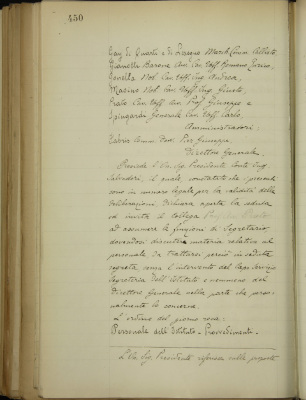 450
Giannella Barone Cav. Uff. Romano Enrico,
Gonella Nob. Cav. Uff. Ing. Andrea,
Masino Nob. Cav. Uff. Ing. Giusto,
Prato Cav. Uff. Avv. Prof. Giuseppe e
Spingarda Generale Cav. Uff. Carlo,
Amministratori:
Comm. Dott. Pier Giuseppe,
Direttore Generale.
Presiede l'Ill. Sig. Presidente Conte Ing.
Salvadori, il quale, constatato che i presenti
sono in numero legale per la validità delle
deliberazioni, dichiara aperta la seduta
ed invita il collega
ad assumere le funzioni di Segretario,
dovendosi discutere materia relativa al
personale da trattarsi perciò in seduta
segreta senza l'intervento del Capo Servizio
Segreteria dell'Istituto e nemmeno del
Direttore Generale nella parte che perso-
nalmente lo concerne.
L'ordine del giorno reca:
Personale dell'Istituto - Provvedimenti.
L'Ill. Sig. Presidente riferisce sulle proposte